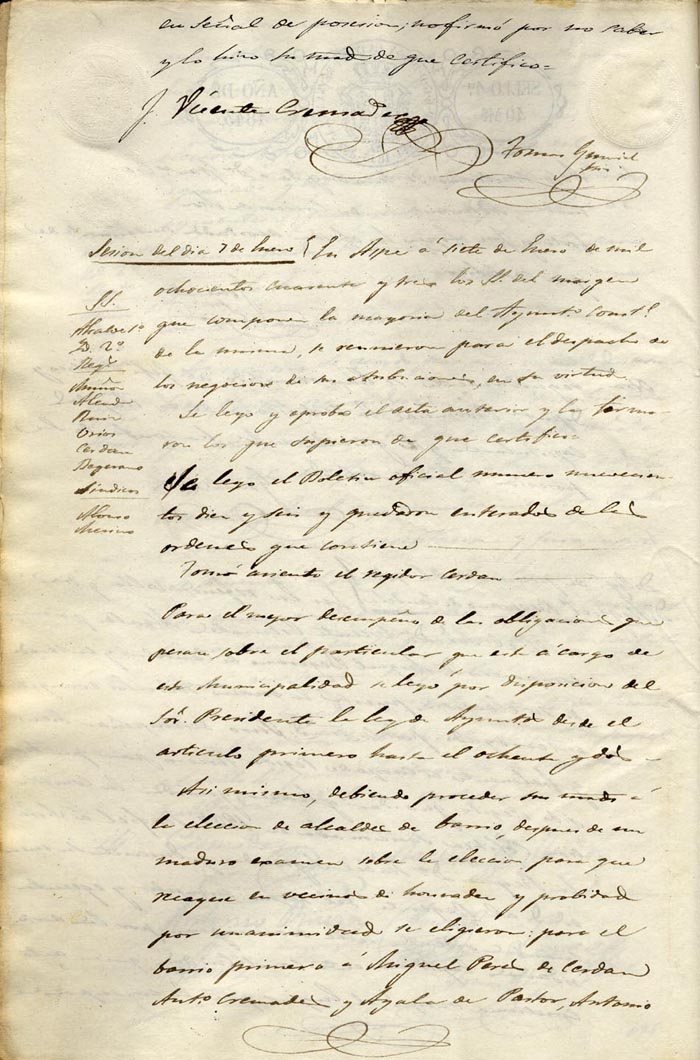 en señal de posesion; no firmó por no saber
y lo hizo su md de que certifico=
J. Vicente Cremades
Tomas
Sesion del dia 7 de Enero { En Aspe á siete de Enero de mil
ochocientos cuarenta y tres los SS. del margen
que componen la mayoria del Ayunto Constl
de la misma, se reunieron para el despacho de
los negocios de sus atribuciones, en su virtud
Se leyo y aprobó el acta anterior y la firma-
ron los que supieron de que certifico=
SS.
Alcalde 1º
D. 2º
Regs
Muñoz
Alcad
Ruiz
Orios
Cerdan
Begerano
Sindicos
Alonso
Merino
Se leyo el Boletin oficial numero nuevecien-
tos diez y seis y quedaron enterados de las
ordenes que contiene
Tomó asiento el regidor Cerdan
Para el mejor desempeño de las obligaciones que
pesan sobre el particular que está á cargo de
esta Municipalidad se leyó por disposicion del
Sor. Presidente la ley de Ayuntos desde el
articulo primero hasta el ochenta y dos
Asi mismo, debiendo proceder sus mds á
la eleccion de alcaldes de barrio, despues de un
maduro examen sobre la eleccion para que
recayese en vecinos de honradez y probidad
por unanimidad se eligieron: para el
barrio primero á Miguel Perez de Cerdan
Anto Cremades y Ayala de Pastor, Antonio